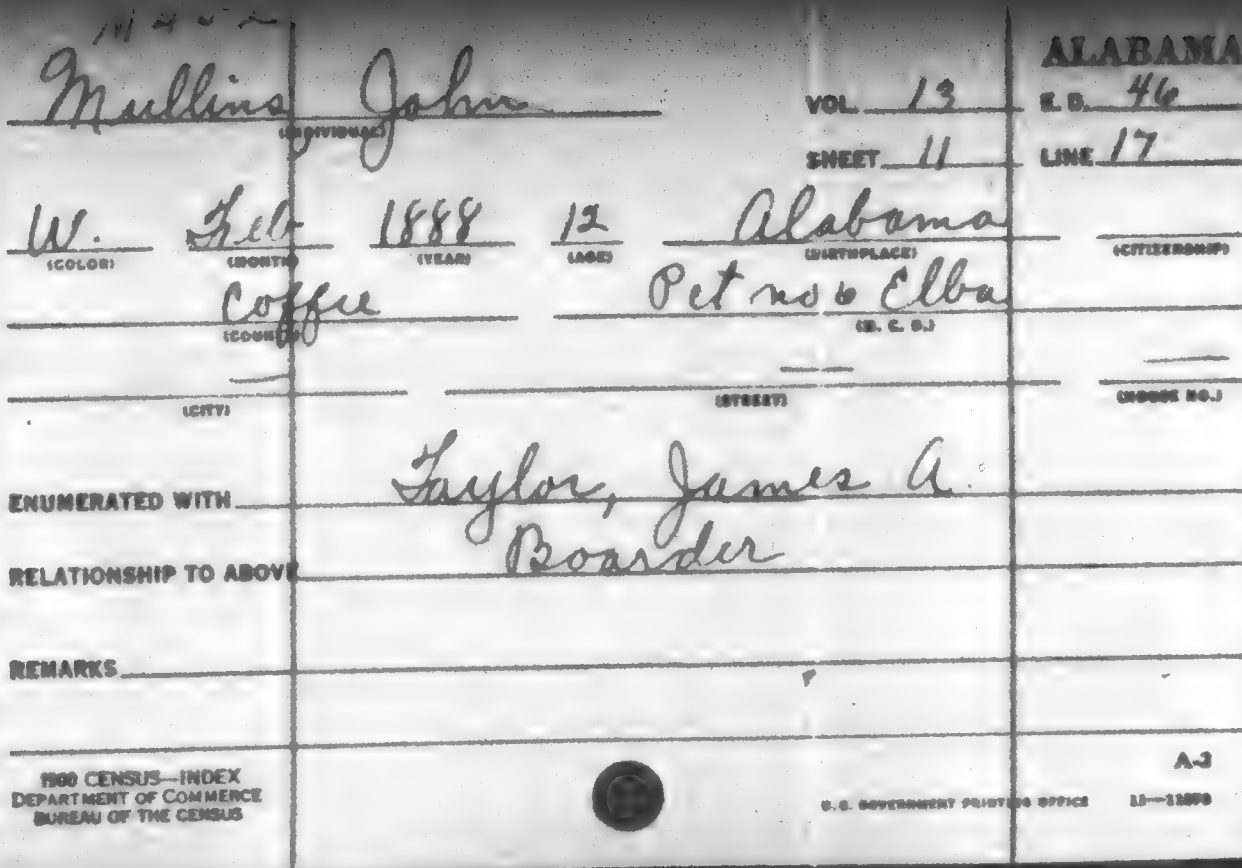 M 4 5 2
ALABAMA
Mullins John VOL. 13 E. D. 46
(INDIVIDUAL)
SHEET 11 LINE 17
W. Feb 1888 12 Alabama
(COLOR) (MONTH) (YEAR) (AGE) (BIRTHPLACE) (CITIZENSHIP)
Coffie Pct no 6 Elba
(COUNTY) (M. C. D.)
(CITY) (STREET) (HOUSE NO.)
ENUMERATED WITH Taylor, James A.
RELATIONSHIP TO ABOVE Boarder
REMARKS
1900 CENSUS—INDEX
DEPARTMENT OF COMMERCE
BUREAU OF THE CENSUS
A-2
U.S. GOVERNMENT PRINTING OFFICE